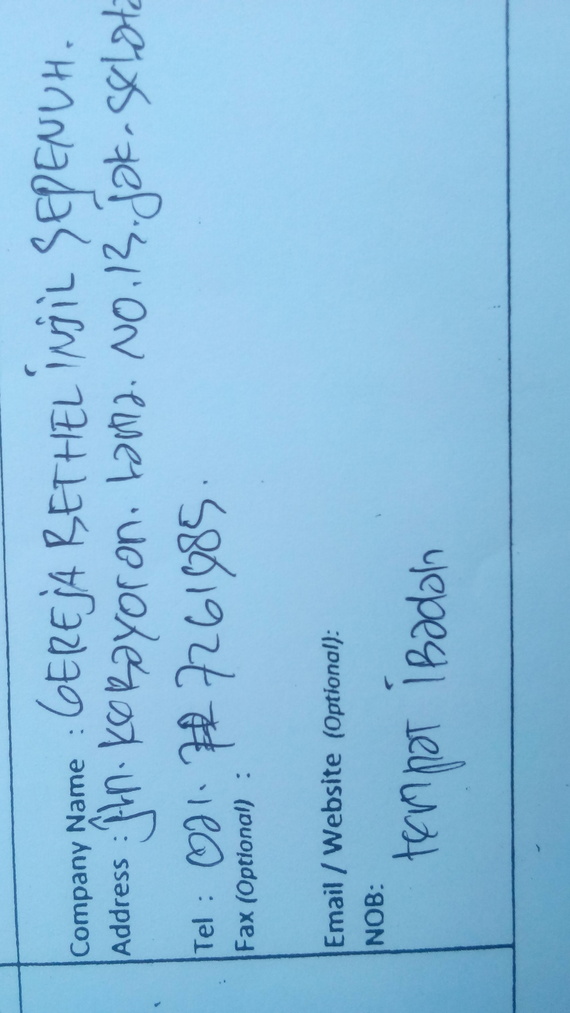 Company Name : GEREJA BETHEL INJIL SEPENUH.
Address : Jln. Kebayoran. Lama. NO. 13. Jak - Selata
Tel : 021. 7261985.
Fax (Optional) :
Email / Website (Optional):
NOB:
tempat iBadah